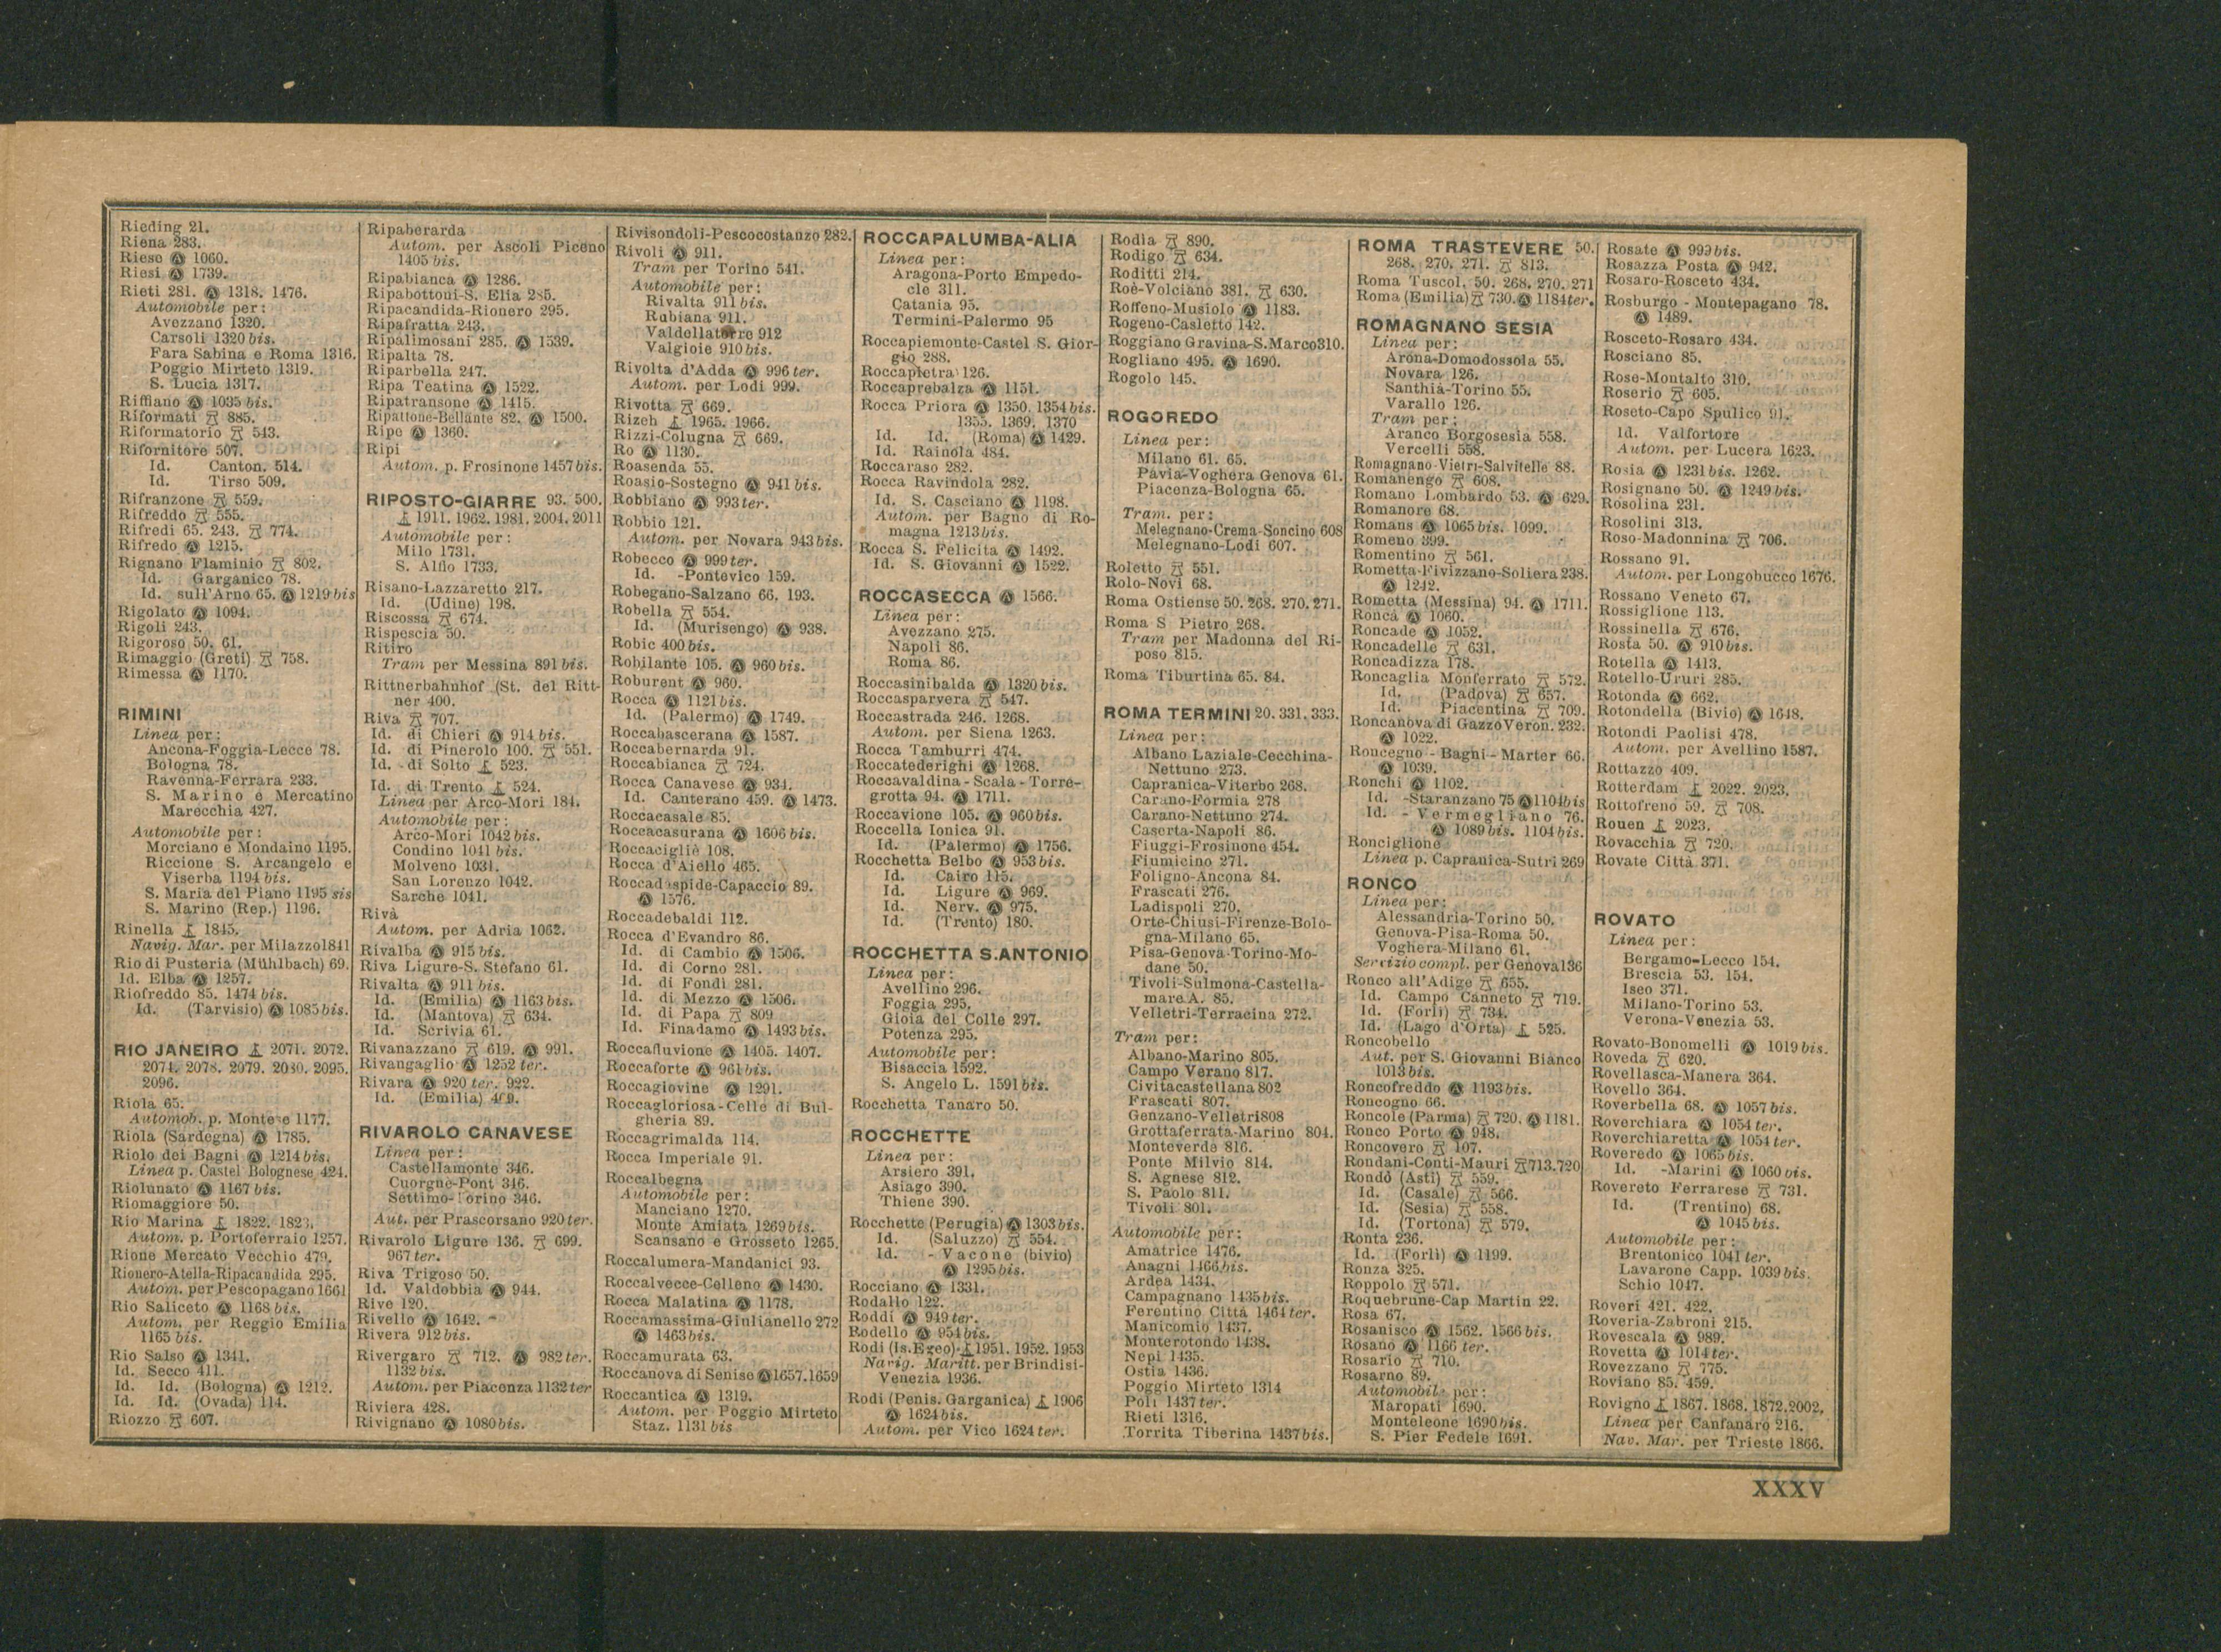 Rieding 21.
Riena 283.
Riese Ⓐ 1060.
Riesi Ⓐ 1739.
Rieti 281. Ⓐ 1318. 1476.
Automobile per:
Avezzano 1320.
Carsoli 1320 bis.
Fara Sabina e Roma 1316.
Poggio Mirteto 1319.
S. Lucia 1317.
Riffiano Ⓐ 1035 bis.
Riformati 885.
Riformatorio 543.
Rifornitore 507.
Id. Canton. 514.
Id. Tirso 509.
Rifranzone 559.
Rifreddo 555.
Rifredi 65. 243. 774.
Rifredo Ⓐ 1215.
Rignano Flaminio 802.
Id. Garganico 78.
Id. sull'Arno 65. Ⓐ 1219 bis
Rigolato Ⓐ 1094.
Rigoli 243.
Rigoroso 50. 61.
Rimaggio (Greti) 758.
Rimessa Ⓐ 1170.
RIMINI
Linea per:
Ancona-Foggia-Lecce 78.
Bologna 78.
Ravenna-Ferrara 233.
S. Marino e Mercatino
Marecchia 427.
Automobile per:
Morciano e Mondaino 1195.
Riccione S. Arcangelo e
Viserba 1194 bis.
S. Maria del Piano 1195 sis
S. Marino (Rep.) 1196.
Rinella 1845.
Navig. Mar. per Milazzo 1841
Rio di Pusteria (Mühlbach) 69.
Id. Elba Ⓐ 1257.
Riofreddo 85. 1474 bis.
Id. (Tarvisio) Ⓐ 1085 bis.
RIO JANEIRO 2071. 2072.
2074. 2078. 2079. 2080. 2095.
2096.
Riola 65.
Automob. p. Montese 1177.
Riola (Sardegna) Ⓐ 1785.
Riolo dei Bagni Ⓐ 1214 bis.
Linea p. Castel Bolognese 424.
Riolunato Ⓐ 1167 bis.
Riomaggiore 50.
Rio Marina 1822. 1823.
Autom. p. Portoferraio 1257.
Rione Mercato Vecchio 479.
Rionero-Atella-Ripacandida 295.
Autom. per Pescopagano 1661
Rio Saliceto Ⓐ 1168 bis.
Autom. per Reggio Emilia
1165 bis.
Rio Salso Ⓐ 1341.
Id. Secco 411.
Id. Id. (Bologna) Ⓐ 1212.
Id. Id. (Ovada) 114.
Riozzo 607.
Ripaberarda
Autom. per Ascoli Piceno
1405 bis.
Ripabianca Ⓐ 1286.
Ripabottoni-S. Elia 285.
Ripacandida-Rionero 295.
Ripafratta 243.
Ripalimosani 285. Ⓐ 1539.
Ripalta 78.
Riparbella 247.
Ripa Teatina Ⓐ 1522.
Ripatransone Ⓐ 1415.
Ripattone-Bellante 82. Ⓐ 1500.
Ripe Ⓐ 1360.
Ripi
Autom. p. Frosinone 1457 bis.
RIPOSTO-GIARRE 93. 500.
1911. 1962. 1981. 2004. 2011
Automobile per:
Milo 1731.
S. Alfio 1733.
Risano-Lazzaretto 217.
Id. (Udine) 198.
Riscossa 674.
Rispescia 50.
Ritiro
Tram per Messina 891 bis.
Rittnerbahnhof (St. del Ritt-
ner 400.
Riva 707.
Id. di Chieri Ⓐ 914 bis.
Id. di Pinerolo 100. 551.
Id. di Solto 523.
Id. di Trento 524.
Linea per Arco-Mori 184.
Automobile per:
Arco-Mori 1042 bis.
Condino 1041 bis.
Molveno 1031.
San Lorenzo 1042.
Sarche 1041.
Rivà
Autom. per Adria 1062.
Rivalba Ⓐ 915 bis.
Riva Ligure-S. Stefano 61.
Rivalta Ⓐ 911 bis.
Id. (Emilia) Ⓐ 1163 bis.
Id. (Mantova) 634.
Id. Scrivia 61.
Rivanazzano 619. Ⓐ 991.
Rivangaglio Ⓐ 1252 ter.
Rivara Ⓐ 920 ter. 922.
Id. (Emilia) 409.
RIVAROLO CANAVESE
Linea per:
Castellamonte 346.
Cuorgnè-Pont 346.
Settimo-Torino 346.
Aut. per Prascorsano 920 ter.
Rivarolo Ligure 136. 699.
967 ter.
Riva Trigoso 50.
Id. Valdobbia Ⓐ 944.
Rive 120.
Rivello Ⓐ 1642.
Rivera 912 bis.
Rivergaro 712. Ⓐ 982 ter.
1132 bis.
Autom. per Piacenza 1132 ter
Riviera 428.
Rivignano Ⓐ 1080 bis.
Rivisondoli-Pescocostanzo 282.
Rivoli Ⓐ 911.
Tram per Torino 541.
Automobile per:
Rivalta 911 bis.
Rubiana 911.
Valdellatorre 912
Valgioie 910 bis.
Rivolta d'Adda Ⓐ 996 ter.
Autom. per Lodi 999.
Rivotta 669.
Rizeh 1965. 1966.
Rizzi-Colugna 669.
Ro Ⓐ 1130.
Roasenda 55.
Roasio-Sostegno Ⓐ 941 bis.
Robbiano Ⓐ 993 ter.
Robbio 121.
Autom. per Novara 943 bis.
Robecco Ⓐ 999 ter.
Id. -Pontevico 159.
Robegano-Salzano 66. 193.
Robella 554.
Id. (Murisengo) Ⓐ 938.
Robic 400 bis.
Robilante 105. Ⓐ 960 bis.
Roburent Ⓐ 960.
Rocca Ⓐ 1121 bis.
Id. (Palermo) Ⓐ 1749.
Roccabascerana Ⓐ 1587.
Roccabernarda 91.
Roccabianca 724.
Rocca Canavese Ⓐ 934.
Id. Canterano 459. Ⓐ 1473.
Roccacasale 85.
Roccacasurana Ⓐ 1606 bis.
Roccacigliè 108.
Rocca d'Aiello 465.
Roccadaspide-Capaccio 89.
Ⓐ 1576.
Roccadebaldi 112.
Rocca d'Evandro 86.
Id. di Cambio Ⓐ 1506.
Id. di Corno 281.
Id. di Fondi 281.
Id. di Mezzo Ⓐ 1506.
Id. di Papa 809
Id. Finadamo Ⓐ 1493 bis.
Roccafluvione Ⓐ 1405. 1407.
Roccaforte Ⓐ 961 bis.
Roccagiovine Ⓐ 1291.
Roccagloriosa-Celle di Bul-
gheria 89.
Roccagrimalda 114.
Rocca Imperiale 91.
Roccalbegna
Automobile per:
Manciano 1270.
Monte Amiata 1269 bis.
Scansano e Grosseto 1265.
Roccalumera-Mandanici 93.
Roccalvecce-Celleno Ⓐ 1430.
Rocca Malatina Ⓐ 1178.
Roccamassima-Giulianello 272
Ⓐ 1463 bis.
Roccamurata 63.
Roccanova di Senise Ⓐ 1657. 1659
Roccantica Ⓐ 1319.
Autom. per Poggio Mirteto
Staz. 1131 bis
ROCCAPALUMBA-ALIA
Linea per:
Aragona-Porto Empedo-
cle 311.
Catania 95.
Termini-Palermo 95
Roccapiemonte-Castel S. Gior-
gio 288.
Roccapietra 126.
Roccaprebalza Ⓐ 1151.
Rocca Priora Ⓐ 1350. 1354 bis.
1355. 1369. 1370
Id. Id. (Roma) Ⓐ 1429.
Id. Rainola 484.
Roccaraso 282.
Rocca Ravindola 282.
Id. S. Casciano Ⓐ 1198.
Autom. per Bagno di Ro-
magna 1213 bis.
Rocca S. Felicita Ⓐ 1492.
Id. S. Giovanni Ⓐ 1522.
ROCCASECCA Ⓐ 1566.
Linea per:
Avezzano 275.
Napoli 86.
Roma 86.
Roccasinibalda Ⓐ 1320 bis.
Roccasparvera 547.
Roccastrada 246. 1268.
Autom. per Siena 1263.
Rocca Tamburri 474.
Roccatederighi Ⓐ 1268.
Roccavaldina-Scala-Torre-
grotta 94. Ⓐ 1711.
Roccavione 105. Ⓐ 960 bis.
Roccella Ionica 91.
Id. (Palermo) Ⓐ 1756.
Rocchetta Belbo Ⓐ 953 bis.
Id. Cairo 115.
Id. Ligure Ⓐ 969.
Id. Nerv. Ⓐ 975.
Id. (Trento) 180.
ROCCHETTA S. ANTONIO
Linea per:
Avellino 296.
Foggia 295.
Gioia del Colle 297.
Potenza 295.
Automobile per:
Bisaccia 1592.
S. Angelo L. 1591 bis.
Rocchetta Tanaro 50.
ROCCHETTE
Linea per:
Arsiero 391.
Asiago 390.
Thiene 390.
Rocchette (Perugia) Ⓐ 1303 bis.
Id. (Saluzzo) 554.
Id. - Vacone (bivio)
Ⓐ 1295 bis.
Rocciano Ⓐ 1331.
Rodallo 122.
Roddi Ⓐ 949 ter.
Rodello Ⓐ 954 bis.
Rodi (Is. Egeo) 1951. 1952. 1953
Navig. Maritt. per Brindisi-
Venezia 1936.
Rodi (Penis. Garganica) 1906
Ⓐ 1624 bis.
Autom. per Vico 1624 ter.
Rodìa 890.
Rodigo 634.
Roditti 214.
Roè-Volciano 381. 630.
Roffeno-Musiolo Ⓐ 1183.
Rogeno-Casletto 142.
Roggiano Gravina-S. Marco 310.
Rogliano 495. Ⓐ 1690.
Rogolo 145.
ROGOREDO
Linea per:
Milano 61. 65.
Pavia-Voghera Genova 61.
Piacenza-Bologna 65.
Tram. per:
Melegnano-Crema-Soncino 608
Melegnano-Lodi 607.
Roletto 551.
Rolo-Novi 68.
Roma Ostiense 50. 268. 270. 271.
Roma S Pietro 268.
Tram per Madonna del Ri-
poso 815.
Roma Tiburtina 65. 84.
ROMA TERMINI 20. 331. 333.
Linea per:
Albano Laziale-Cecchina-
Nettuno 273.
Capranica-Viterbo 268.
Carano-Formia 278
Carano-Nettuno 274.
Caserta-Napoli 86.
Fiuggi-Frosinone 454.
Fiumicino 271.
Foligno-Ancona 84.
Frascati 276.
Ladispoli 270.
Orte-Chiusi-Firenze-Bolo-
gna-Milano 65.
Pisa-Genova-Torino-Mo-
dane 50.
Tivoli-Sulmona-Castella-
mare A. 85.
Velletri-Terracina 272.
Tram per:
Albano-Marino 805.
Campo Verano 817.
Civitacastellana 802
Frascati 807.
Genzano-Velletri 808
Grottaferrata-Marino 804.
Monteverde 816.
Ponte Milvio 814.
S. Agnese 812.
S. Paolo 811.
Tivoli 801.
Automobile per:
Amatrice 1476.
Anagni 1466 bis.
Ardea 1434.
Campagnano 1435 bis.
Ferentino Città 1464 ter.
Manicomio 1437.
Monterotondo 1438.
Nepi 1435.
Ostia 1436.
Poggio Mirteto 1314
Poli 1437 ter.
Rieti 1316.
Torrita Tiberina 1437 bis.
ROMA TRASTEVERE 50.
268. 270. 271. 813.
Roma Tuscol. 50. 268. 270. 271
Roma (Emilia) 730. Ⓐ 1184 ter.
ROMAGNANO SESIA
Linea per:
Arona-Domodossola 55.
Novara 126.
Santhià-Torino 55.
Varallo 126.
Tram per:
Aranco Borgosesia 558.
Vercelli 558.
Romagnano-Vietri-Salvitelle 88.
Romanengo 608.
Romano Lombardo 53. Ⓐ 629.
Romanore 68.
Romans Ⓐ 1065 bis. 1099.
Romeno 399.
Romentino 561.
Rometta-Fivizzano-Soliera 238.
Ⓐ 1242.
Rometta (Messina) 94. Ⓐ 1711.
Roncà Ⓐ 1060.
Roncade Ⓐ 1052.
Roncadelle 631.
Roncadizza 178.
Roncaglia Monferrato 572.
Id. (Padova) 657.
Id. Piacentina 709.
Roncanova di Gazzo Veron. 232.
Ⓐ 1022.
Roncegno - Bagni - Marter 66.
Ⓐ 1039.
Ronchi Ⓐ 1102.
Id. -Staranzano 75 Ⓐ 1104 bis
Id. - Vermegliano 76.
Ⓐ 1089 bis. 1104 bis.
Ronciglione
Linea p. Capranica-Sutri 269
RONCO
Linea per:
Alessandria-Torino 50.
Genova-Pisa-Roma 50.
Voghera-Milano 61.
Servizio compl. per Genova 136
Ronco all'Adige 655.
Id. Campo Canneto 719.
Id. (Forlì) 734.
Id. (Lago d'Orta) 525.
Roncobello
Aut. per S. Giovanni Bianco
1013 bis.
Roncofreddo Ⓐ 1193 bis.
Roncogno 66.
Roncole (Parma) 720. Ⓐ 1181.
Ronco Porto Ⓐ 948.
Roncovero 107.
Rondani-Conti-Mauri 713. 720
Rondò (Asti) 559.
Id. (Casale) 566.
Id. (Sesia) 558.
Id. (Tortona) 579.
Ronta 236.
Id. (Forlì) Ⓐ 1199.
Ronza 325.
Roppolo 571.
Roquebrune-Cap Martin 22.
Rosa 67.
Rosanisco Ⓐ 1562. 1566 bis.
Rosano Ⓐ 1166 ter.
Rosario 710.
Rosarno 89.
Automobile per:
Maropati 1690.
Monteleone 1690 bis.
S. Pier Fedele 1691.
Rosate Ⓐ 999 bis.
Rosazza Posta Ⓐ 942.
Rosaro-Rosceto 434.
Rosburgo - Montepagano 78.
Ⓐ 1489.
Rosceto-Rosaro 434.
Rosciano 85.
Rose-Montalto 310.
Roserio 605.
Roseto-Capo Spulico 91.
Id. Valfortore
Autom. per Lucera 1623.
Rosia Ⓐ 1231 bis. 1262.
Rosignano 50. Ⓐ 1249 bis.
Rosolina 231.
Rosolini 313.
Roso-Madonnina 706.
Rossano 91.
Autom. per Longobucco 1676.
Rossano Veneto 67.
Rossiglione 113.
Rossinella 676.
Rosta 50. Ⓐ 910 bis.
Rotella Ⓐ 1413.
Rotello-Ururi 285.
Rotonda Ⓐ 662.
Rotondella (Bivio) Ⓐ 1648.
Rotondi Paolisi 478.
Autom. per Avellino 1587.
Rottazzo 409.
Rotterdam 2022. 2023.
Rottofreno 59. 708.
Rouen 2023.
Rovacchia 720.
Rovate Città 371.
ROVATO
Linea per:
Bergamo-Lecco 154.
Brescia 53. 154.
Iseo 371.
Milano-Torino 53.
Verona-Venezia 53.
Rovato-Bonomelli Ⓐ 1019 bis.
Roveda 620.
Rovellasca-Manera 364.
Rovello 364.
Roverbella 68. Ⓐ 1057 bis.
Roverchiara Ⓐ 1054 ter.
Roverchiaretta Ⓐ 1054 ter.
Roveredo Ⓐ 1065 bis.
Id. -Marini Ⓐ 1060 bis.
Rovereto Ferrarese 731.
Id. (Trentino) 68.
Ⓐ 1045 bis.
Automobile per:
Brentonico 1041 ter.
Lavarone Capp. 1039 bis.
Schio 1047.
Roveri 421. 422.
Roveria-Zabroni 215.
Rovescala Ⓐ 989.
Rovetta Ⓐ 1014 ter.
Rovezzano 775.
Roviano 85. 459.
Rovigno 1867. 1868. 1872. 2002.
Linea per Canfanaro 216.
Nav. Mar. per Trieste 1866.
XXXV